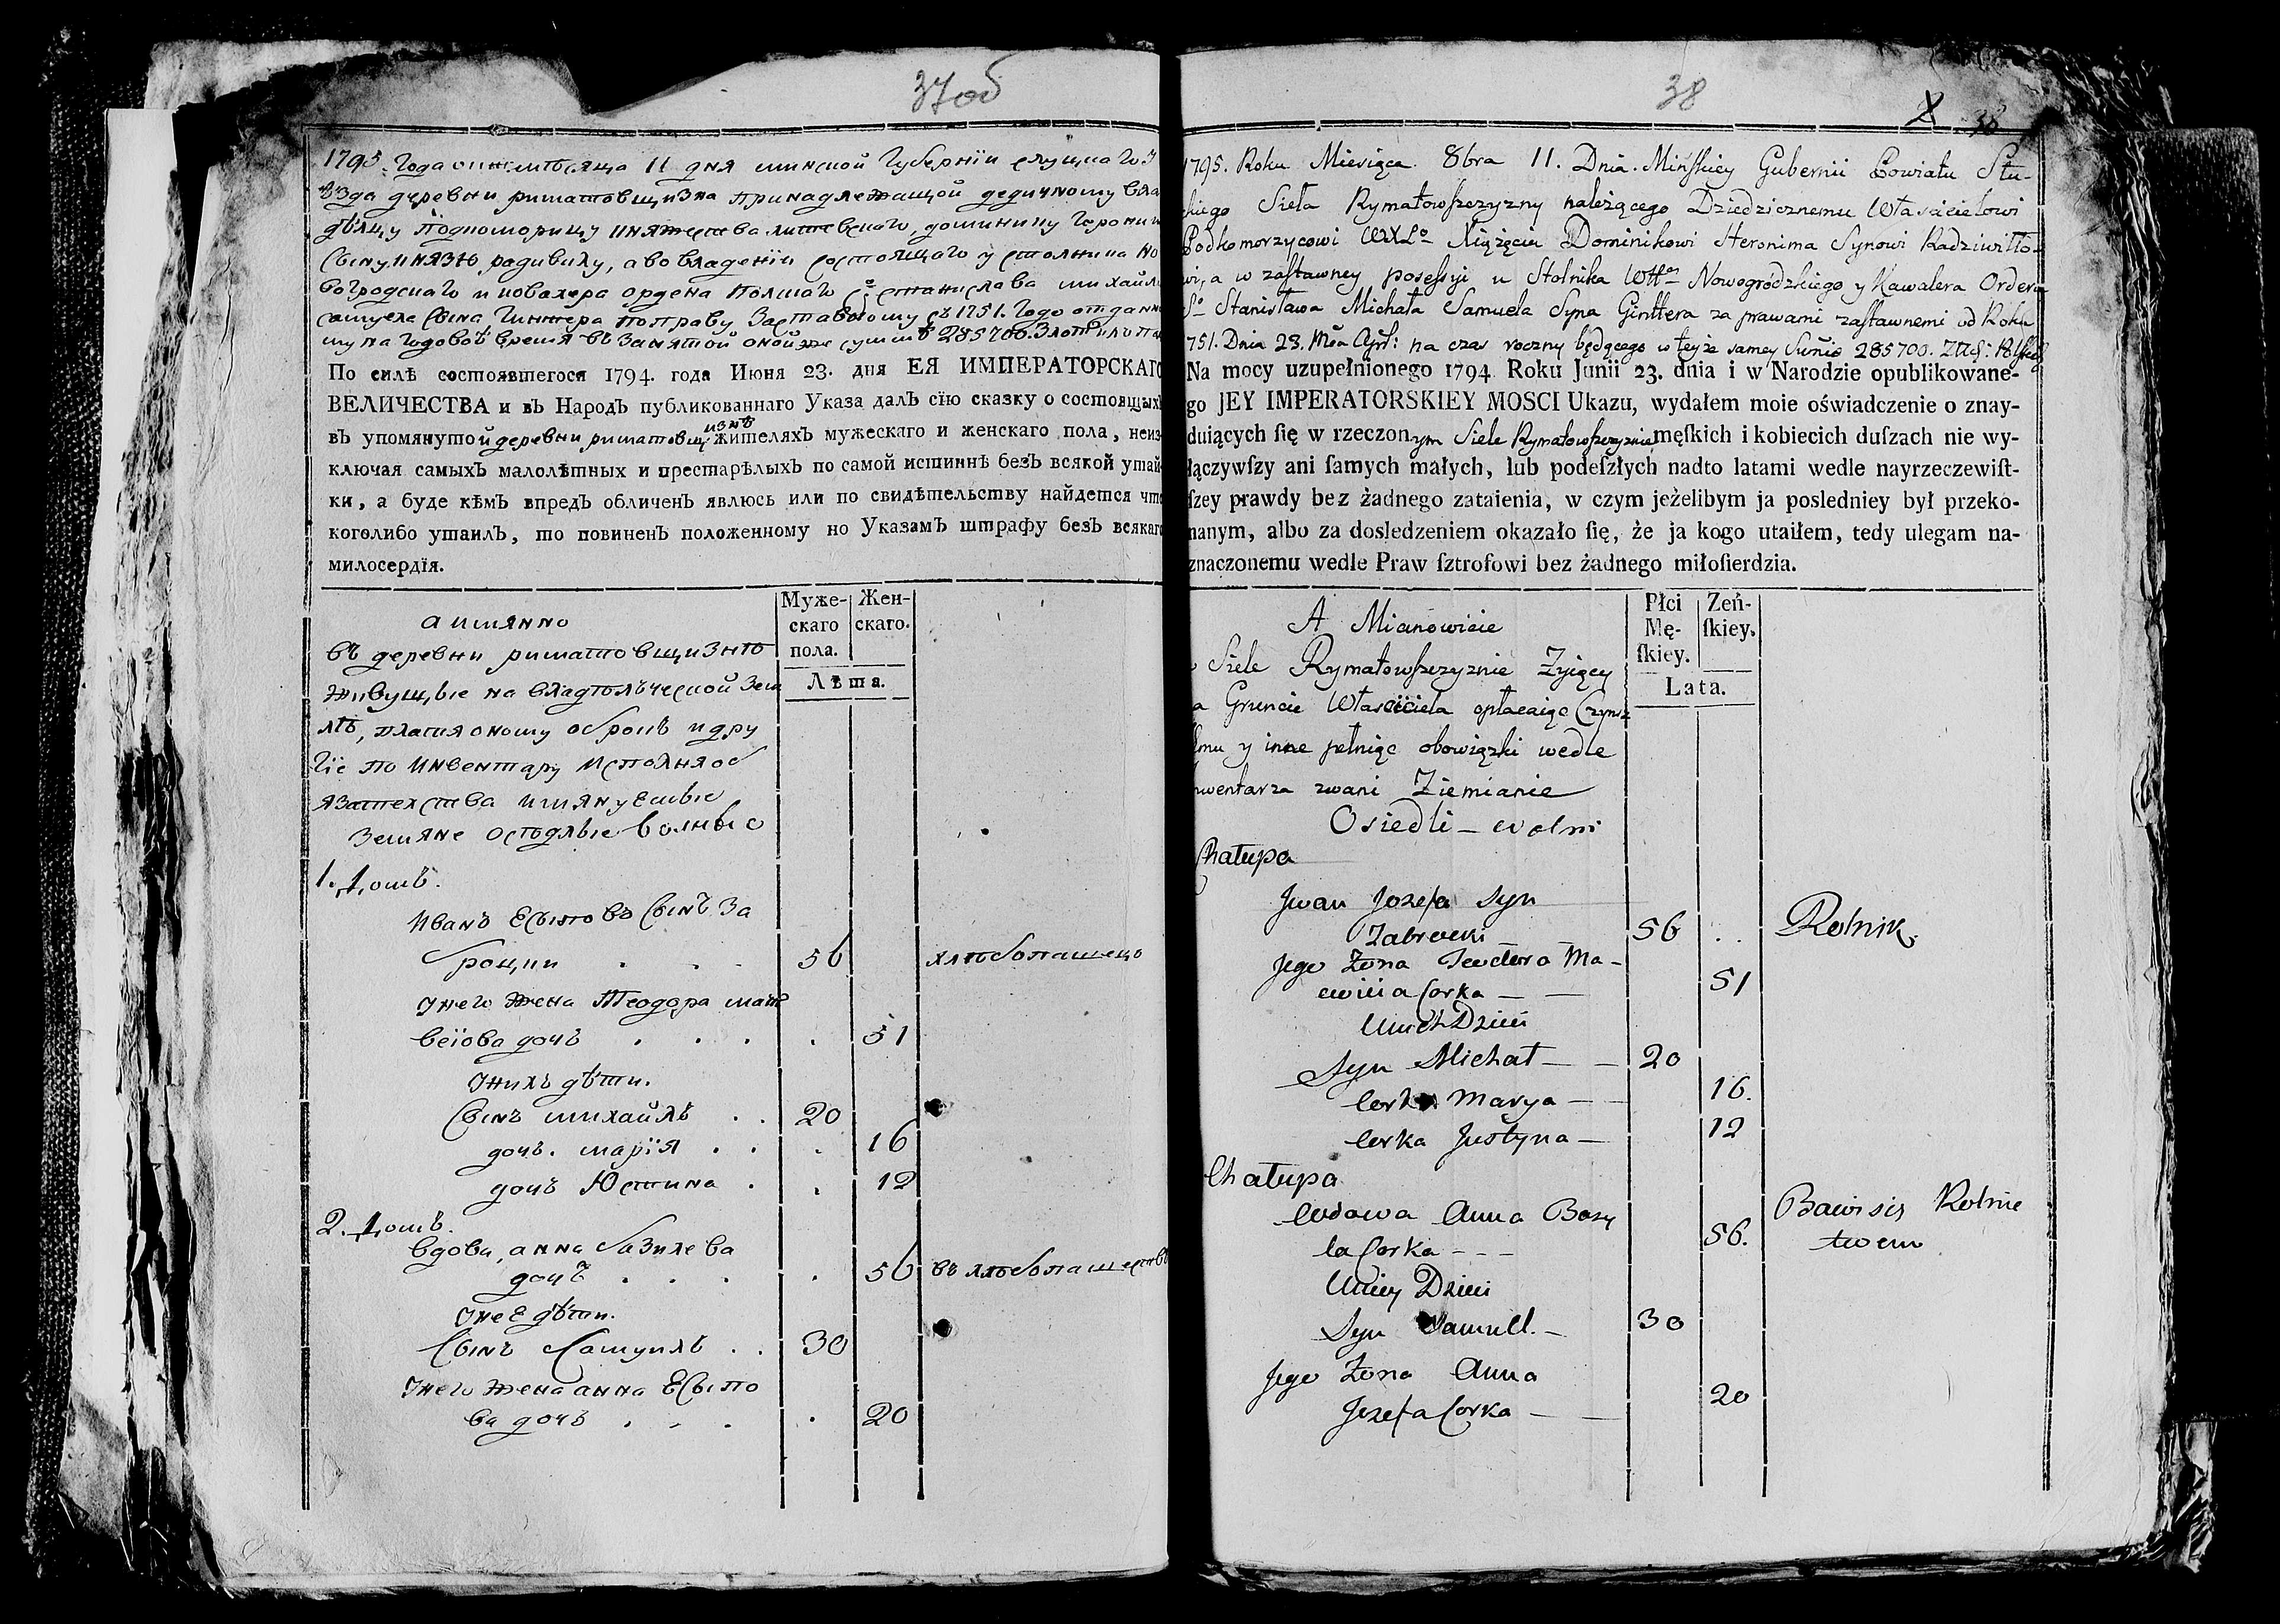 37об
1795. Года октс мѣсяца 11 дня минской Губернїи слуцкаго У
ѣзда деревни риматовщизна принадлежащой дедичному вла
дѣлцу Подкоморицу княжества литовскаго, доминику Героним
Сыну князю радивилу, а во владенїи состоящаго у столника но
вогродскаго и ковалера ордена Полшаго Сго станислава михайл
самуела Сына Гинтера поправу Заставному съ 1751. Года отданн
му на Годовоѣ время въ Занятой оной же суммѣ 285700. Злот
По силѣ состоявшегося 1794. года Июня 23. дня ЕЯ ИМПЕРАТОРСКАГО
ВЕЛИЧЕСТВА и въ Народъ публикованнаго Указа далъ сїю сказку о состоящыхъ
въ упомянутой деревни риматовщизнѣ жителяхъ мужескаго и женскаго пола, неиз-
ключая самыхъ малолѣтныхъ и престарѣлыхъ по самой истиннѣ безъ всякой утай-
ки, а буде кѣмъ впредъ обличенъ явлюсь или по свидѣтельству найдется что
коголибо утаилъ, то повиненъ положенному по Указамъ штрафу безъ всякаго
милосердїя.
Муже-
скаго
пола.
Жен-
скаго.
Лѣта.
а имянно
въ деревни риматовщизнѣ
живущые на владѣлческой зем
лѣ, платя оному оброкъ и дру
гїе по инвентару исполняоб
язателства имянуемые
земяне осѣдлые волные
1. Домъ.
Иванъ Есыповъ Сынъ За
броцки . . . 56 хлѣбопашецъ
У него жена Теодора мат
веїова дочъ . . . . 51
У нихъ дѣти.
Сынъ михайлъ . . 20
дочъ. марїя . . . 16
дочъ Юстина . . 12
2. Домъ.
вдова, анна базилева
дочъ . . . . 56 въ хлѣбопашествѣ
У нее дѣти.
Сынъ Самуилъ . . 30
У него жена анна Есыпо
ва дочъ . . . . 20
38
38
1795. Roku Miesiąca 8bra 11. Dnia. Mińskiey Gubernii Powiatu Słu-
ckiego Sieła Rymatowszczyzny należącego Dziedzicznemu Własicielowi
Podkomorzycowi WXLo Xiążęciu Dominikowi Heronima Synowi Radziwiłło-
wi, a w zastawney posessyi u Stolnika Wttwa Nowogródzkiego y Kawalera Ordera
So Stanisława Michała Samuela Syna Ginttera za prawami zastawnemi od Roku
751. Dnia 23. Msca Aprl: na czas roczny będącego w teyże samey Sumie 285700. Złł: Polskich
Na mocy uzupełnionego 1794 Roku Junii 23. dnia i w Narodzie opublikowane-
go JEY IMPERATORSKIEY MOSCI Ukazu, wydałem moie oświadczenie o znay-
duiących ſię w rzeczonym Siele Rymatowszczyznie męſkich i kobiecich duſzach nie wy-
łączywſzy ani ſamych małych, lub podeſzłych nadto latami wedle nayrzeczewiſt-
ſzey prawdy bez żadnego zataienia, w czym jeżelibym ja posledniey był przeko-
nanym, albo za dosledzeniem okazało ſię, że ja kogo utaiłem, tedy ulegam na-
znaczonemu wedle Praw ſztrofowi bez żadnego miłoſierdzia.
Płci
Mę-
ſkiey.
Zeń-
ſkiey.
Lata.
A Mianowicie
w Siele Rymatowszczyznie Zyiący
na Gruncie Własciciela opłacaiąc Czynsz
Jmu y inne pełniąc obowiązki wedle
Inwentarza zwani Ziemianie
Osiedli – wolni
Chałupa
Jwan Jozefa Syn
Zabrocki – – 56 . . Rolnik.
Jego Zona Teodora Ma-
cwiia Corka – – 51
U nich Dzieci
Syn Michał – – 20
Corka Marya – – 16.
Corka Justyna – 12
Chałupa
Wdowa Anna Bazy
la Corka – – – 56. Bawi się Rolnic
twem
U niey Dzieci
Syn Samuel. – 30
Jego Zona Anna
Jozefa Corka – – 20